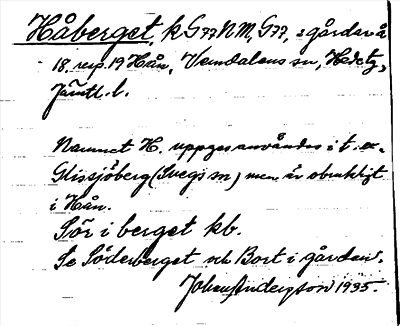 Håberget, k G77 NM, G77, 2 gårdar å
18 resp. 19 Hån, Vemdalens sn, Hede tg,
Jämtl. l.
Namnet H. uppges användas i t. ex.
Glissjöberg (Svegs sn) men är obrukligt
i Hån.
Sör i berget kb.
Se Söderberget och Bort i gården.
Johan Anderson 1935.